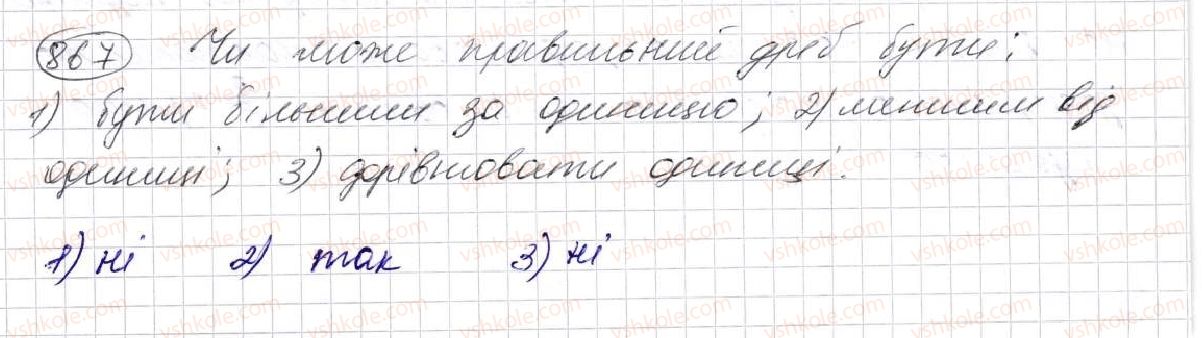 867 Чи може правильний дріб бути:
1) бути більшим за одиницю; 2) меншим від
одиниці; 3) дорівнювати одиниці.
1) ні 2) так 3) ні